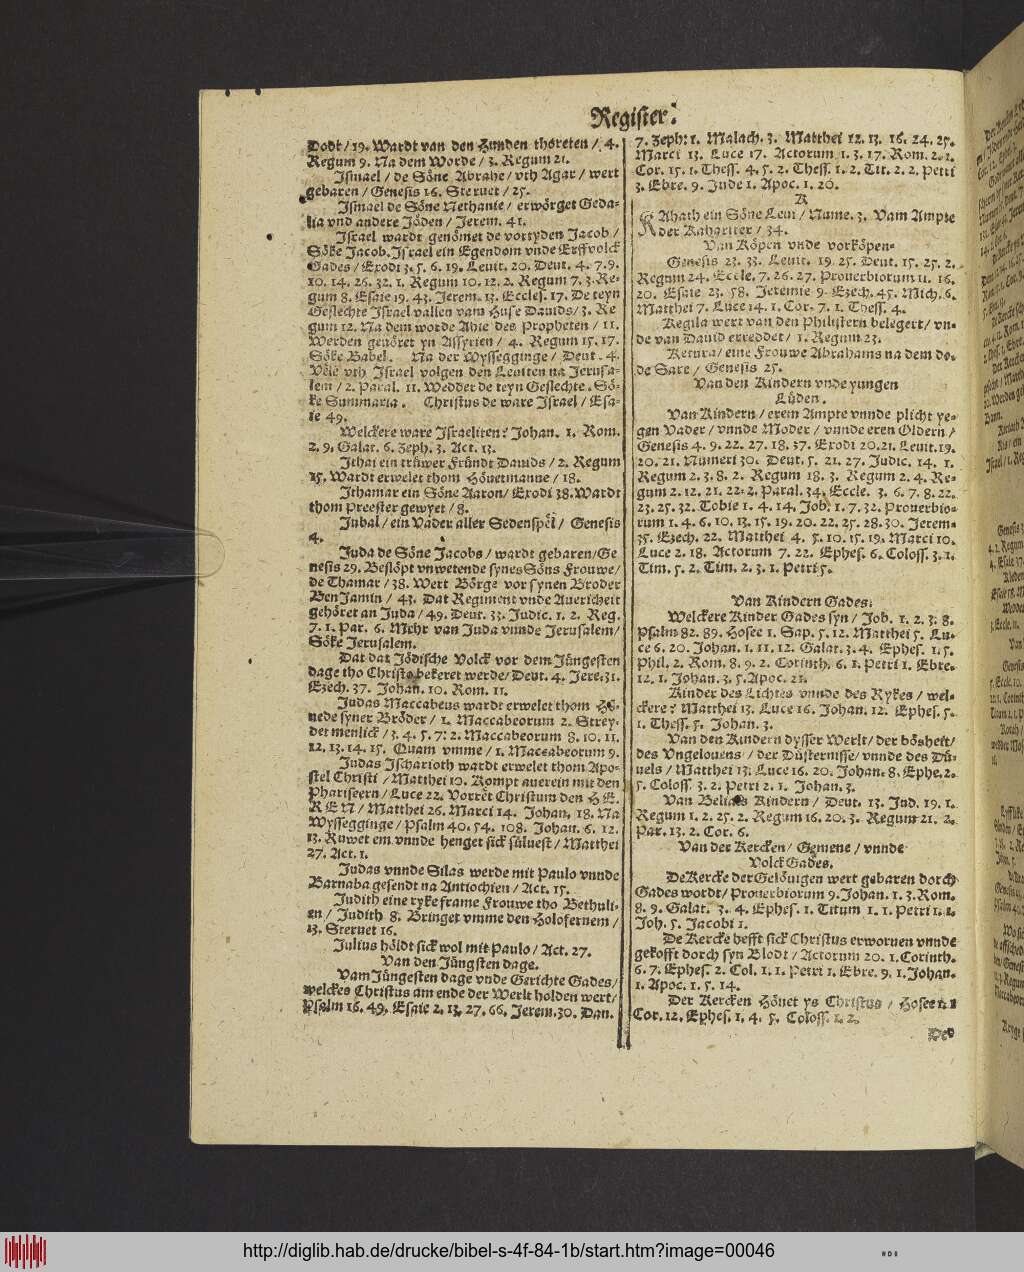 Register.
Dodt / 19. Wardt van den Hunden thoreten / 4.
Regum 9. Na dem Worde / 3. Regum 21.
Ismael / de Söne Abrahe / vth Agar / wert
gebaren / Genesis 16. Steruet / 25.
Ismael de Söne Nethanie / erwörget Geda-
lia vnd andere Jöden / Jerem. 41.
Israel wardt genömet de vortyden Jacob /
Söke Jacob. Israel ein Egendom vnde Erffvolck
Gades / Exodi 3. 5. 6. 19. Leuit. 20. Deut. 4. 7. 9.
10. 14. 26. 32. 1. Regum 10. 12. 2. Regum 7. 3. Re-
gum 8. Esaie 19. 43. Jerem. 13. Eccles. 17. De teyn
Geslechte Israel vallen vam Huse Dauids / 3. Re
gum 12. Na dem worde Ahie des Propheten / 11.
Werden geuöret yn Assyrien / 4. Regum 15. 17.
Söke Babel. Na der Wyssegginge / Deut. 4.
Vele vth Israel volgen den Leuiten na Jerusa-
lem / 2. Paral. 11. Wedder de teyn Geslechte. Sö-
ke Summaria. Christus de ware Israel / Esa-
ie 49.
Welckere ware Israeliten? Johan. 1. Rom.
2. 9. Galat. 6. Zeph. 3. Act. 13.
Ithai ein trüwer Fründt Dauids / 2. Regum
15. Wardt erwelet thom Höuetmanne / 18.
Ithamar ein Söne Aaron / Exodi 38. Wardt
thom Preester gewyet / 8.
Jubal / ein Vader aller Sedenspël / Genesis
4.
Juda de Söne Jacobs / wardt gebaren / Ge
nesis 29. Beslöpt vnwetende synes Söns Frouwe /
de Thamar / 38. Wert Börge vor synen Broder
BenJamin / 43. Dat Regiment vnde Auericheit
gehöret an Juda / 49. Deut. 33. Judic. 1. 2. Reg.
7. 1. Par. 6. Mehr van Juda vunde Jerusalem /
Söke Jerusalem.
Dat dat Jödische Volck vor dem Jüngesten
dage tho Christo bekeret werde / Deut. 4. Jere. 31.
Ezech. 37. Johan. 10. Rom. 11.
Judas Maccabeus wardt erwelet thom Hö-
uede syner Bröder / 1. Maccabeorum 2. Strey-
det menlick / 3. 4. 5. 7: 2. Maccabeorum 8. 10. 11.
12. 13. 14. 15. Quam vmme / 1. Maccabeorum 9.
Judas Ischarioth wardt erwelet thom Apo-
stel Christi / Matthei 10. Kompt auerein mit den
Phariseern / Luce 22. Vorrët Christum den HE.
REN / Matthei 26. Marci 14. Johan. 18. Na
Wyssegginge / Psalm 40. 54. 108. Johan. 6. 12.
13. Ruwet em vnnde henget sick süluest / Matthei
27. Act. 1.
Judas vnnde Silas werde mit Paulo vnnde
Barnaba gesendt na Antiochien / Act. 15.
Judith eine ryke frame Frouwe tho Bethuli-
en / Judith 8. Bringet vmme den Holofernem /
13. Steruet 16.
Julius höldt sick wol mit Paulo / Act. 27.
Van den Jüngsten dage.
Vam Jüngesten dage vnde Gerichte Gades /
welckes Christus am ende der Werlt holden wert /
Psalm 16. 49. Esaie 2. 13. 27. 66. Jerem. 30. Dan.
7. Zeph: 1. Malach. 3. Matthei 12. 13. 16. 24. 25.
Marci 13. Luce 17. Actorum 1. 3. 17. Rom. 2. 1.
Cor. 15. 1. Thess. 4. 5. 2. Thess. 1. 2. Tit. 2. 2. Petri
3. Ebre. 9. Jude 1. Apoc. 1. 20.
K
KAhath ein Söne Leui / Nume. 3. Vam Ampte
der Kahatiter / 34.
Van Köpen vnde vorköpen.
Genesis 23. 33. Leuit. 19. 25. Deut. 15. 25. 2.
Regum 24. Eccle. 7. 26. 27. Prouerbiorum 11. 16.
20. Esaie 23. 58. Jeremie 9. Ezech. 45. Mich. 6.
Matthei 7. Luce 14. 1. Cor. 7. 1. Thess. 4.
Kegila wert van den Philistern belegert / vn-
de van Dauid erreddet / 1. Regum 23.
Ketura / eine Frouwe Abrahams na dem do-
de Sare / Genesis 25.
Van den Kindern vnde yungen
Lüden.
Van Kindern / erem Ampte vnnde plicht ye-
gen Vader / vnnde Moder / vnnde eren Oldern /
Genesis 4. 9. 22. 27. 18. 37. Exodi 20. 21. Leuit. 19.
20. 21. Numeri 30. Deut. 5. 21. 27. Judic. 14. 1.
Regum 2. 3. 8. 2. Regum 18. 3. Regum 2. 4. Re-
gum 2. 12. 21. 22. 2. Paral. 34. Eccle. 3. 6. 7. 8. 22.
23. 25. 32. Tobie 1. 4. 14. Job. 1. 7. 32. Prouerbio-
rum 1. 4. 6. 10. 13. 15. 19. 20. 22. 25. 28. 30. Jerem.
35. Ezech. 22. Matthei 4. 5. 10. 15. 19. Marci 10.
Luce 2. 18. Actorum 7. 22. Ephes. 6. Coloss. 3. 1.
Tim. 5. 2. Tim. 2. 3. 1. Petri 5.
Van Kindern Gades.
Welckere Kinder Gades syn / Job. 1. 2. 3. 8.
Psalm 82. 89. Hosee 1. Sap. 5. 12. Matthei 5. Lu-
ce 6. 20. Johan. 1. 11. 12. Galat. 3. 4. Ephes. 1. 5.
Phil. 2. Rom. 8. 9. 2. Corinth. 6. 1. Petri 1. Ebre.
12. 1. Johan. 3. 5. Apoc. 21.
Kinder des Lichtes vnnde des Rykes / wel-
ckere? Matthei 13. Luce 16. Johan. 12. Ephes. 5.
1. Thess. 5. Johan. 3.
Van den Kindern dysser Werlt / der bösheit /
des Vngelouens / der Düsternisse / vnnde des Dü-
uels / Matthei 13. Luce 16. 20. Johan. 8. Ephe. 2.
5. Coloss. 3. 2. Petri 2. 1. Johan. 3.
Van Belials Kindern / Deut. 13. Jud. 19. 1.
Regum 1. 2. 25. 2. Regum 16. 20. 3. Regum 21. 2.
Par. 13. 2. Cor. 6.
Van der Kercken / Gemene / vnnde
Volck Gades.
De Kercke der Gelöuigen wert gebaren dorch
Gades wordt / Prouerbiorum 9. Johan. 1. 3. Rom.
8. 9. Galat. 3. 4. Ephes. 1. Titum 1. 1. Petri 1. 1.
Joh. 5. Jacobi 1.
De Kercke hefft sick Christus erworuen vnnde
gekofft dorch syn Blodt / Actorum 20. 1. Corinth.
6. 7. Ephes. 2. Col. 1. 1. Petri 1. Ebre. 9. 1. Johan.
1. Apoc. 1. 5. 14.
Der Kercken Höuet ys Christus / Hosee 1. 1
Cor. 12. Ephes. 1. 4. 5. Coloss. 1. 2.
Der
http://diglib.hab.de/drucke/bibel-s-4f-84-1b/start.htm?image=00046